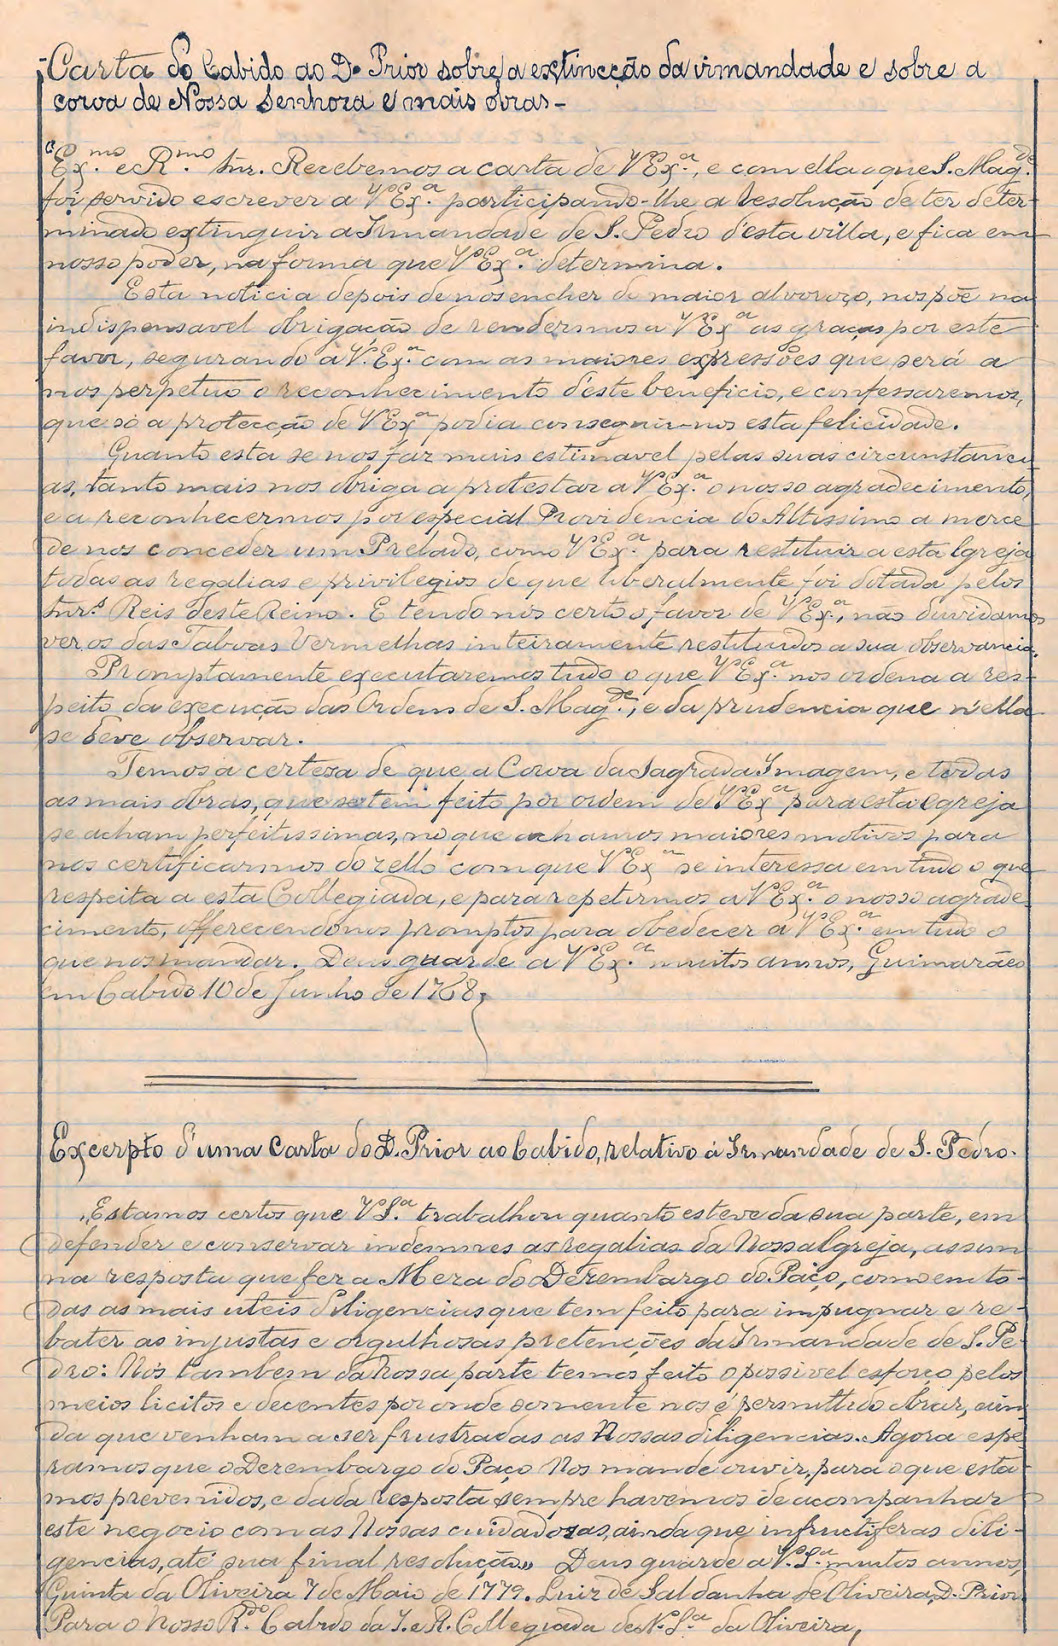 -Carta do Cabido ao D. Prior sobre a extincção da irmandade e sobre a
coroa de Nossa Senhora e mais obras-
"Ex.mo e R.mo Snr. Recebemos a carta de VEx.a, e com ella a que S. Mag.de
foi servido escrever a VEx.a participando-lhe a resolução de ter deter-
minado extinguir a Irmandade de S. Pedro d'esta villa, e fica em
nosso poder, na forma que VEx.a determina.
Esta noticia depois de nos encher de maior alvoroço, nos põe na
indispensavel obrigação de rendermos a VEx.a as graças por este
favor, segurando a V.Ex.a com as maiores expressões que será a
nos perpetuo o reconhecimento d'este beneficio, e confessaremos,
que só a protecção de VEx.a podia conseguir-nos esta felicidade.
Quanto esta se nos faz mais estimavel pelas suas circunstanci
as, tanto mais nos obriga a protestar a VEx.a o nosso agradecimento,
e a reconhecermos por especial Providencia do Altissimo a merce
de nos conceder um Prelado, como VEx.a para restituir a esta Igreja
todas as regalias e privilegios de que liberalmente foi dotada pelos
Snr.s Reis deste Reino. E tendo nos certo o favor de VEx.a, não duvidamos
ver os das Taboas Vermelhas inteiramente restituidos a sua observancia.
Promptamente executaremos tudo o que VEx.a nos ordena a res-
peito da execução das Ordens de S. Mag.de, e da prudencia que n'ella
se deve observar.
Temos a certeza de que a Coroa da Sagrada Imagem, e todas
as mais obras, que se tem feito por ordem de VEx.a para esta egreja
se acham perfeitissimas, no que achamos maiores motivos para
nos certificarmos do zello com que VEx.a se interessa em tudo o que
respeita a esta Collegiada, e para repetirmos a VEx.a o nosso agrade
cimento, offerecendonos promptos para obedecer a VEx.a em tudo o
que nos mandar. Deus guarde a VEx.a muitos annos, Guimarães
em Cabido 10 de Junho de 1768,
Excerpto d'uma Carta do D. Prior ao Cabido, relativo á Irmandade de S. Pedro.
"Estamos certos que VS.a trabalhou quanto esteve da sua parte, em
defender e conservar indemnes as regalias da Nossa Igreja, assim
na resposta que fez a Meza do Dezembargo do Paço, como em to-
das as mais uteis diligencias que tem feito para impugnar e re-
bater as injustas e orgulhosas pretenções da Irmandade de S. Pe-
dro: Nós tambem da Nossa parte temos feito o possivel esforço pelos
meios licitos e decentes por onde somente nos é permittido obrar, ain
da que venham a ser frustradas as Nossas diligencias. Agora espe
ramos que o Dezembargo do Paço Nos mande ouvir, para o que esta
mos prevenidos, e dada resposta sempre havemos de acompanhar
este negocio com as Nossas cuidadosas, ainda que infructiferas dili-
gencias, até sua final resolução" Deus guarde a V.S.a muitos annos,
Quinta da Oliveira 7 de Maio de 1779. Luiz de Saldanha de Oliveira, D. Prior
Para o Nosso R.do Cabido da I. e R. Collegiada de N. S.a da Oliveira,